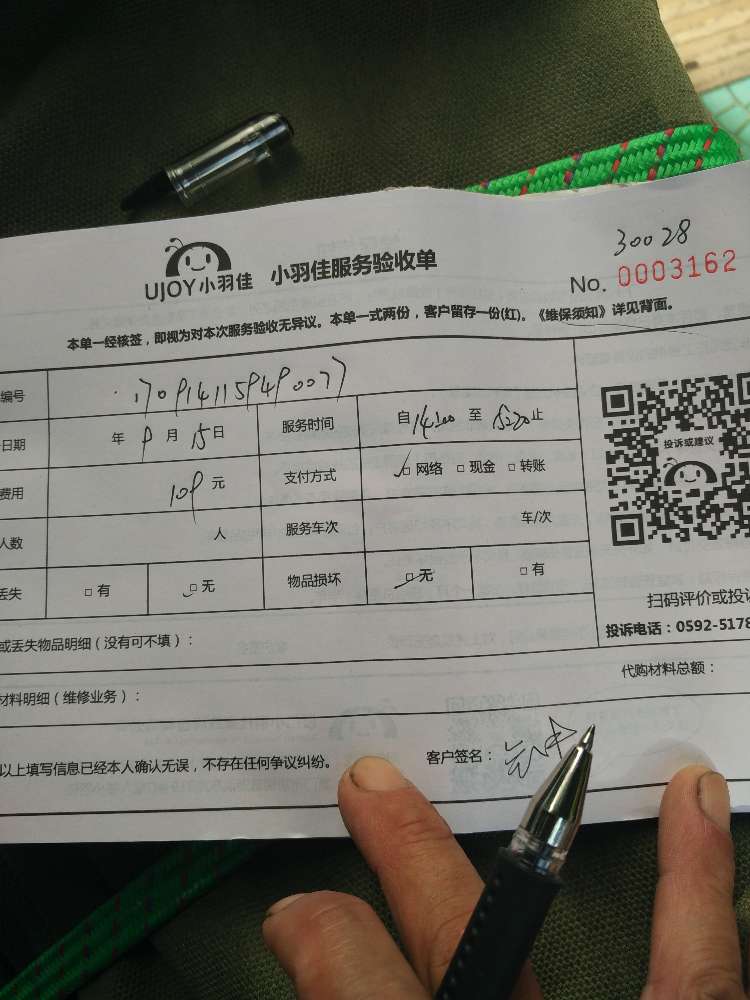 30028
UJOY小羽佳 小羽佳服务验收单
No. 0003162
本单一经核签，即视为对本次服务验收无异议。本单一式两份，客户留存一份(红)。《维保须知》详见背面。
编号 1709141159490077
日期 年 9 月 15 日 服务时间 自 14:00 至 15:20 止
费用 109 元 支付方式 □ 网络 □ 现金 □ 转账
人数 人 服务车次 车/次
丢失 □ 有 □ 无 物品损坏 □ 无 □ 有
投诉或建议
扫码评价或投诉
投诉电话：0592-5178
或丢失物品明细（没有可不填）：
材料明细（维修业务）： 代购材料总额：
以上填写信息已经本人确认无误，不存在任何争议纠纷。 客户签名：